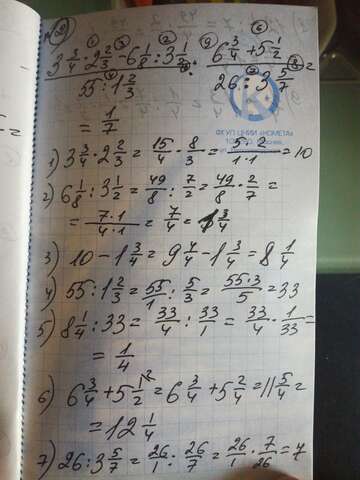 3 3/4 · 2 2/3 - 6 1/8 : 3 1/2
55 : 1 2/3
6 3/4 + 5 1/2
26 : 3 5/7 =
= 1/7
ФГУП ЦНИИ «КОМЕТА»
1) 3 3/4 · 2 2/3 = 15/4 · 8/3 = 5·2/1·1 = 10
2) 6 1/8 : 3 1/2 = 49/8 : 7/2 = 49/8 · 2/7 =
= 7·1/4·1 = 7/4 = 1 3/4
3) 10 - 1 3/4 = 9 4/4 - 1 3/4 = 8 1/4
4) 55 : 1 2/3 = 55/1 : 5/3 = 55·3/5 = 33
5) 8 1/4 : 33 = 33/4 : 33/1 = 33/4 · 1/33 =
= 1/4
6) 6 3/4 + 5 1/2 = 6 3/4 + 5 2/4 = 11 5/4 =
= 12 1/4
7) 26 : 3 5/7 = 26/1 : 26/7 = 26/1 · 7/26 = 7